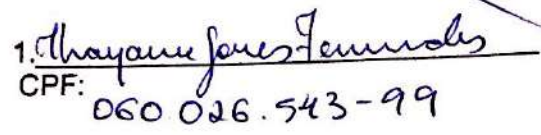 1. Thayane Gomes Fernandes
CPF:
060.026.543-99